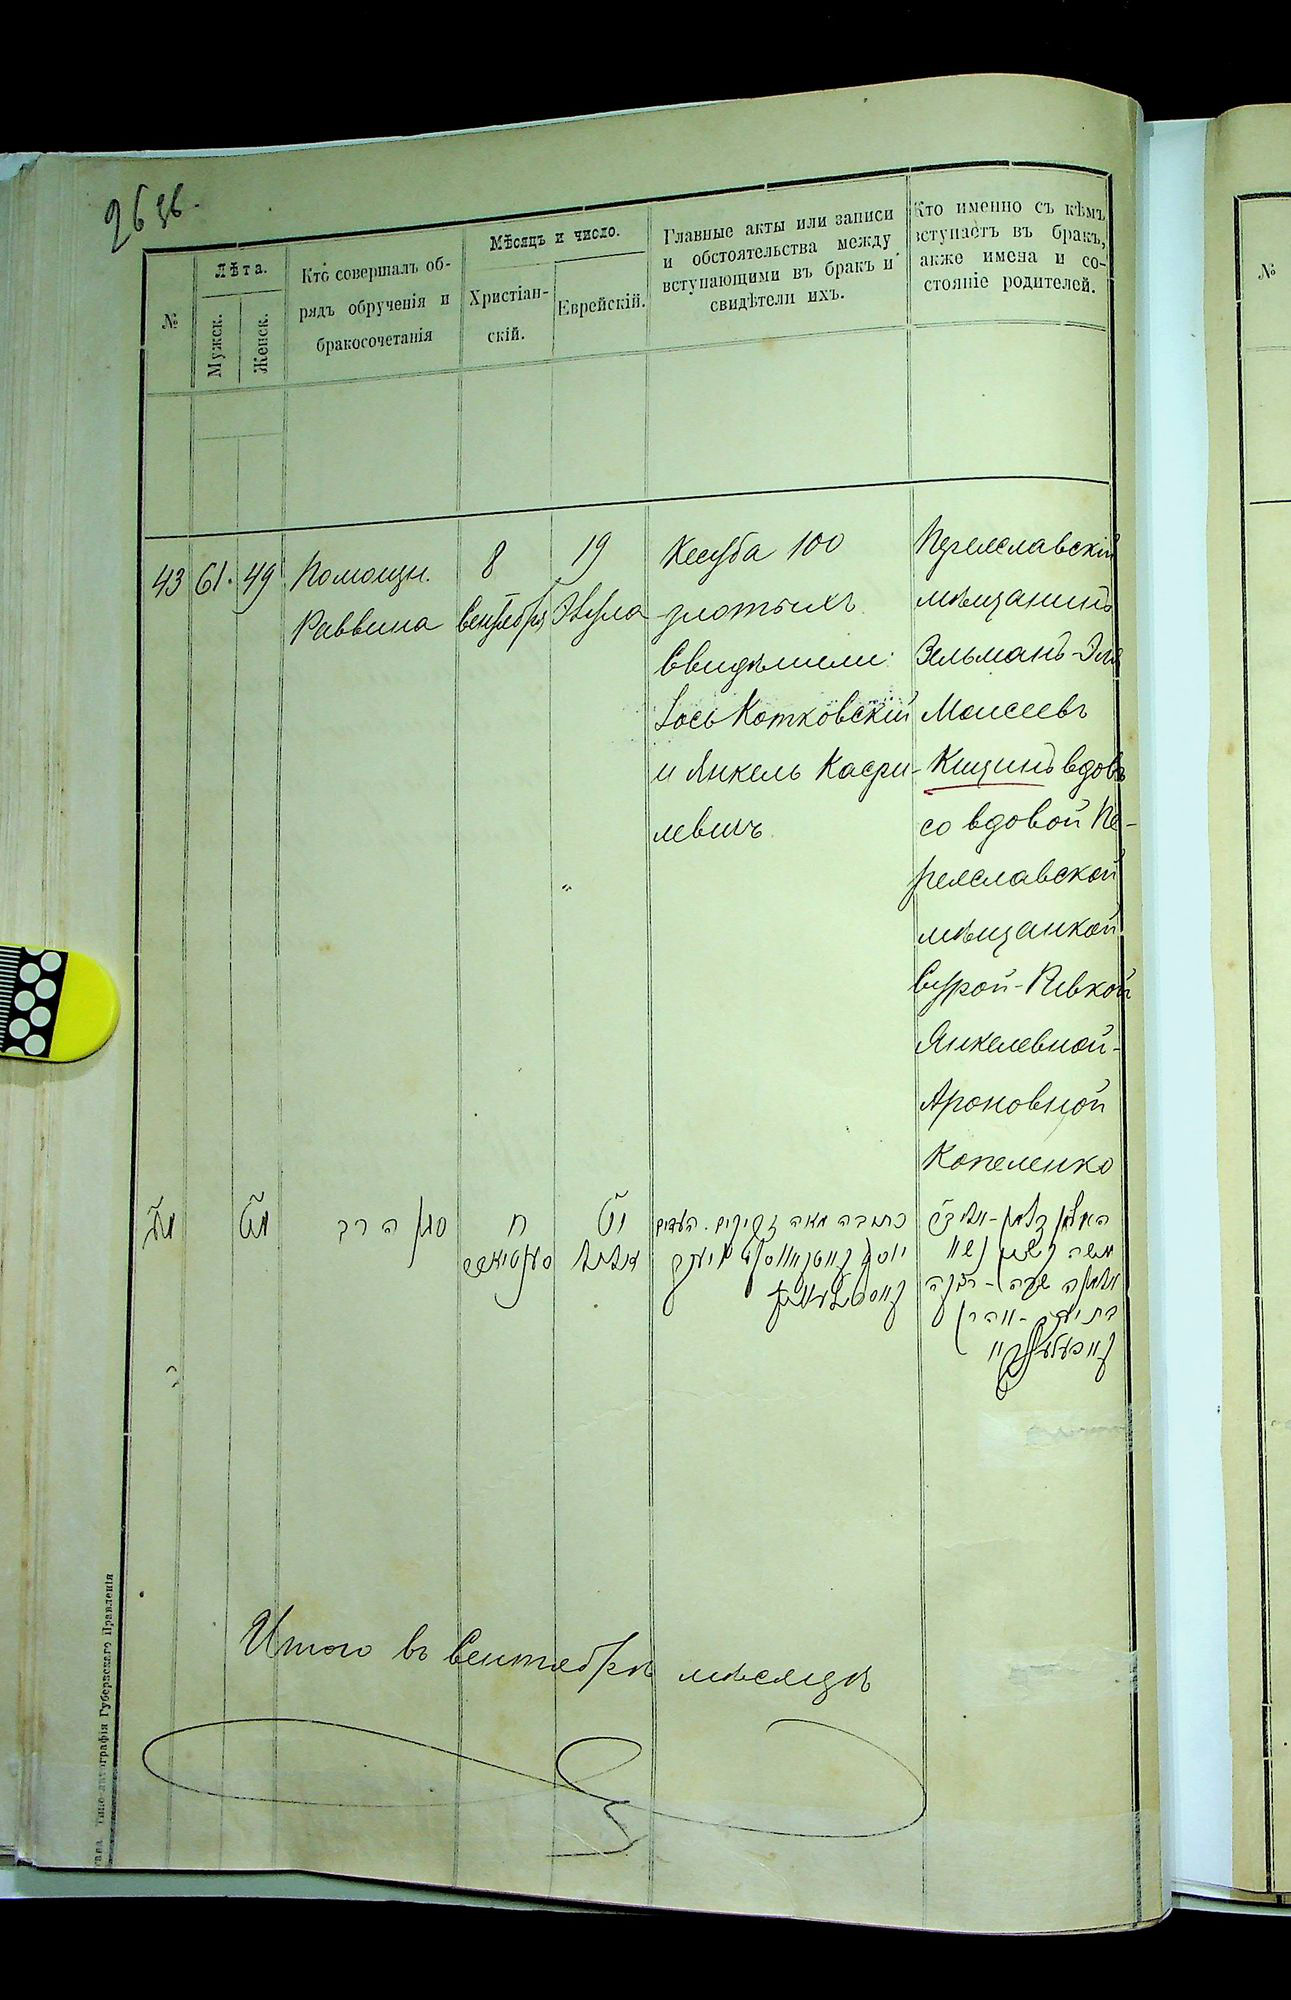 2636.
№
Лѣта.
Мужск.
Женск.
Кто совершалъ об-
рядъ обрученія и
бракосочетанія
Мѣсяцъ и число.
Христіан-
скій.
Еврейскій.
Главные акты или записи
и обстоятельства между
вступающими въ бракъ и
свидѣтели ихъ.
Кто именно съ кѣмъ
вступаетъ въ бракъ,
акже имена и со-
стояніе родителей.
№
43
61.
49
Помощн.
Раввина
8
Сентября
19
Элула
Кесуба 100
злотыхъ
Свидѣтели:
Іось Котковскій
и Янкель Касри-
левичъ
Переяславскій
мѣщанинъ
Зельманъ-Эля
Моисеевъ
Кищинъ вдовъ
со вдовой Пе-
реяславской
мѣщанкой
Сурой-Ривкой
Янкелевной-
Ароновной
Копеленко
מג
מט
סגן הרב
ח
יט
אלול
כתובה מאה זקוקים. העדים
יוסף
משה
שרה-רבקה
בת יעקב-אהרן
Итого въ Сентябрѣ мѣсяцѣ
ографія Губернскаго Правленія